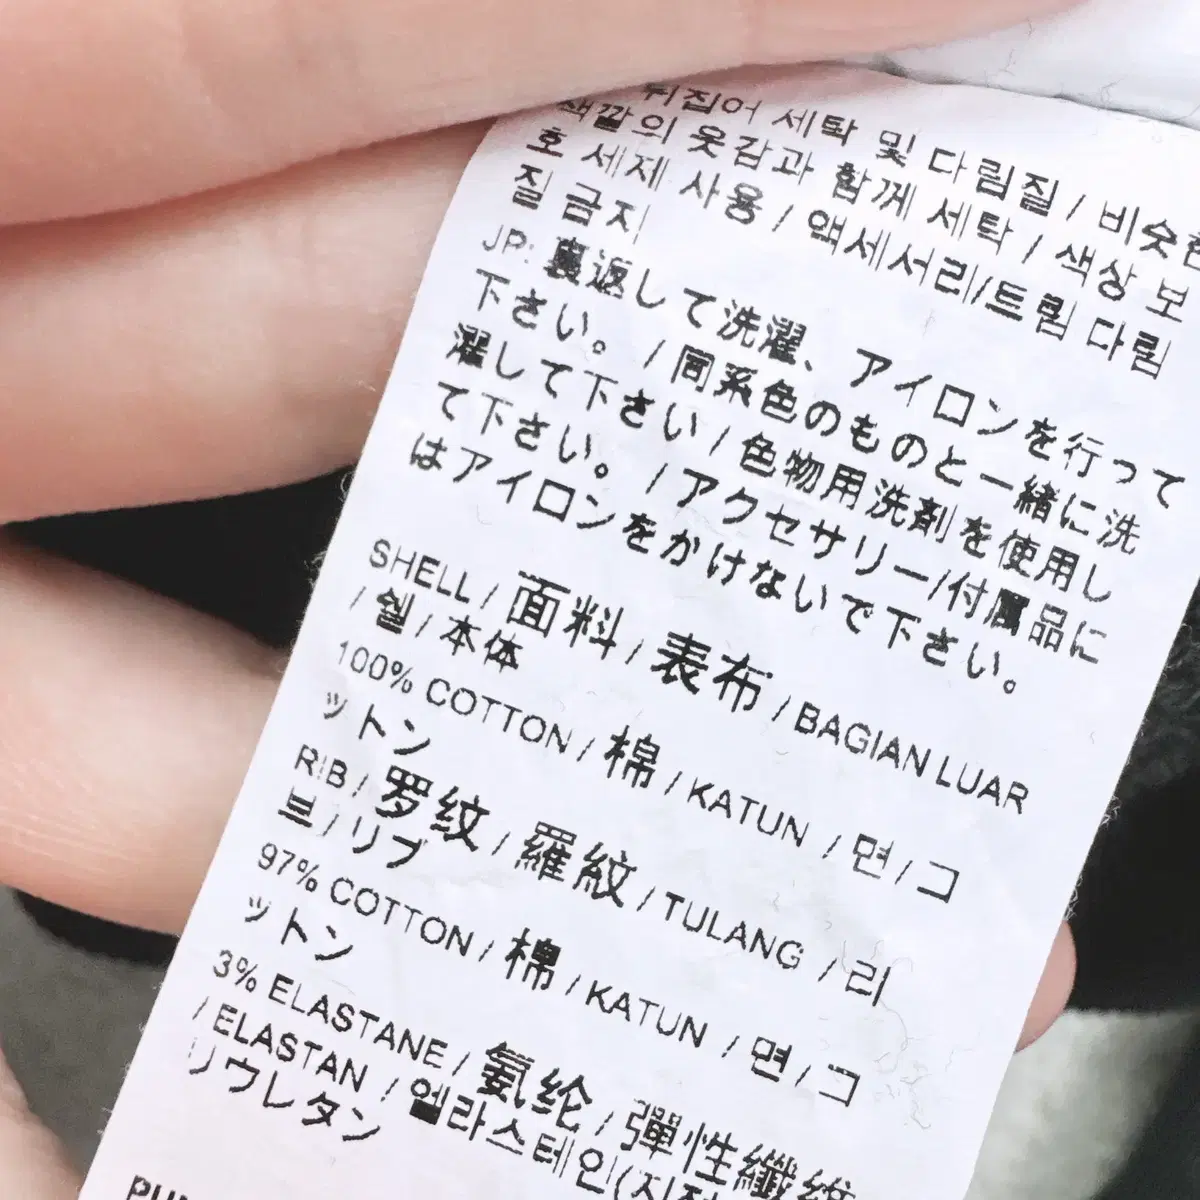 뒤집어 세탁 및 다림질 / 비슷한
색깔의 옷감과 함께 세탁 / 색상 보
호 세제 사용 / 액세서리/트림 다림
질 금지
JP: 裏返して洗濯、アイロンを行って
下さい。 / 同系色のものと一緒に洗
濯して下さい / 色物用洗剤を使用し
て下さい。 / アクセサリー/付属品に
はアイロンをかけないで下さい。
SHELL / 面料 / 表布 / BAGIAN LUAR
/ 쉘 / 本体
100% COTTON / 棉 / KATUN / 면 / コ
ットン
RIB / 罗纹 / 羅紋 / TULANG / 리
브 / リブ
97% COTTON / 棉 / KATUN / 면 / コ
ットン
3% ELASTANE / 氨纶 / 彈性纖維
/ ELASTAN / 엘라스테인(지정
リウレタン